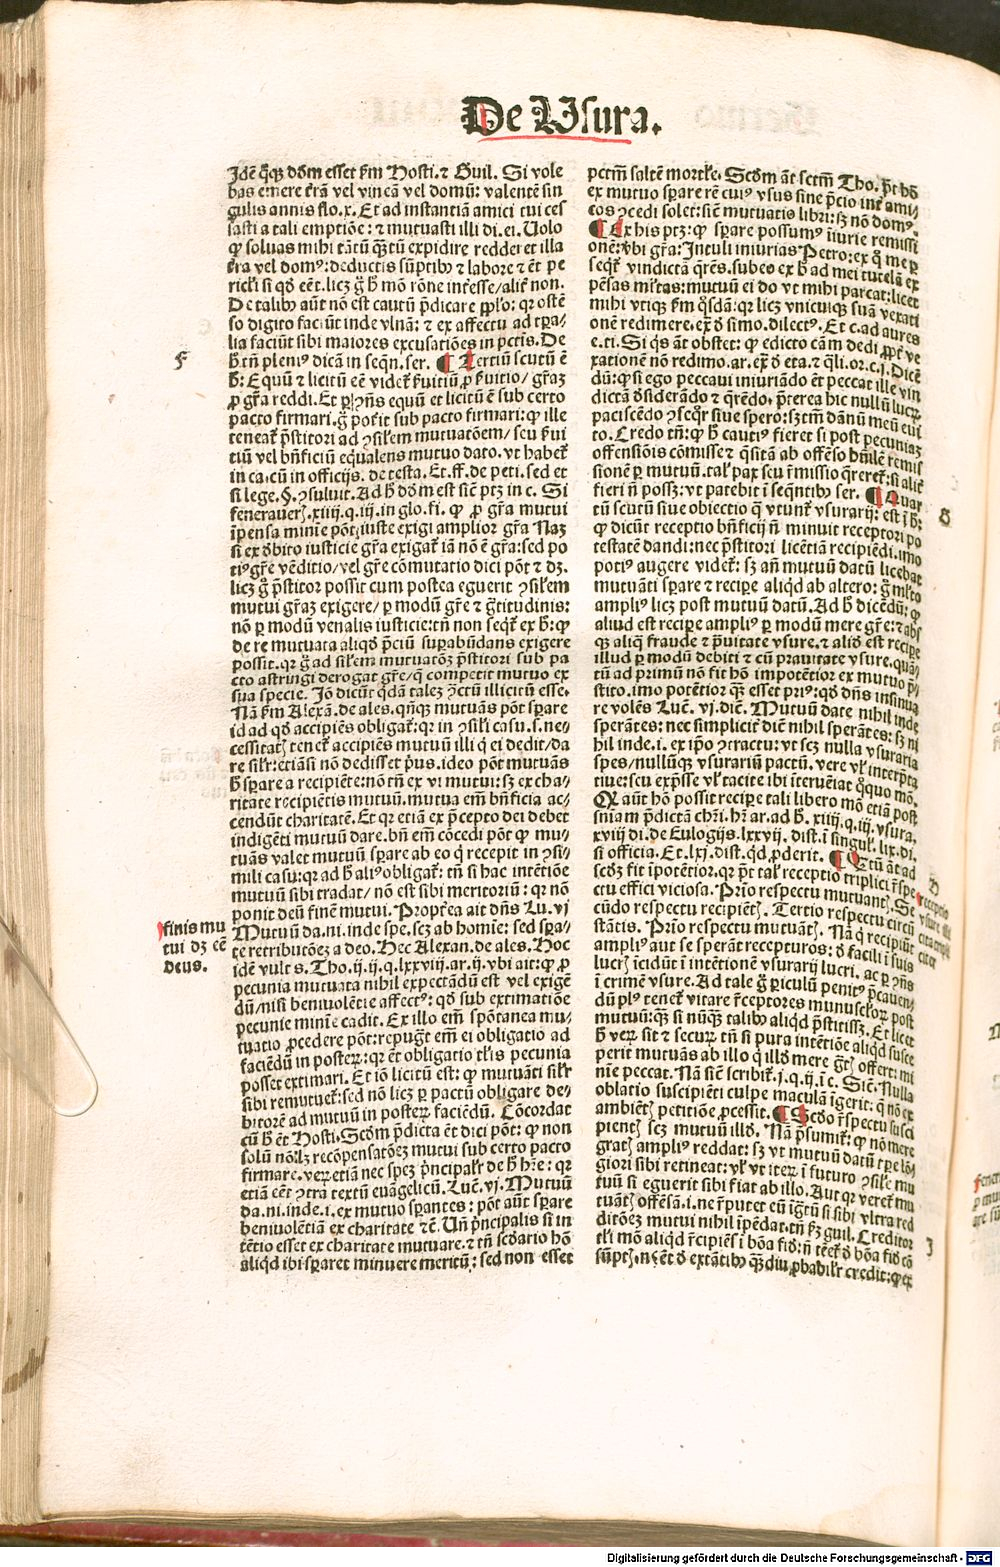 De Usura.
Idē q̄q̨ dōm esset ẜm Hosti. ⁊ Guil. Si vole
bas emere t̄rā vel vineā vel domū: valentē sin
gulis annis flo. x. Et ad instantiā amici tui ces
sasti a tali emptiōe: ⁊ mutuasti illi di. ei. Uolo
ꝙ soluas mihi tātū qꝫtū expidire redderet illa
t̄ra vel domꝰ: deductis sūptibꝰ ⁊ labore ⁊ ēt pe
riclī si qd̄ eēt. licꝫ g̊ h̄ mō rōne int̄esse/ alit̄ non.
De talibꝰ aūt nō est cautū p̄dicare ppl̄o: qꝛ ostē
so digito faciūt inde vlnā: ⁊ ex affectu ad tp̄a-
lia faciūt sibi maiores excusatiōes in pctīs. De
h̄ tn̄ pleniꝰ dicā in seqn̄. ser. ¶ Tertiū scutū ē
h̄: Equū ⁊ licitū eē videt̄ ẜuitiū ꝓ ẜuitio/ gr̄aꝫ
ꝓ gr̄a reddi. Et ꝑ ꝯn̄s equū et licitū ē sub certo
pacto firmari. g̊ pot̄it sub pacto firmari: ꝙ ille
teneat̄ p̄stitori ad ꝯsilem̄ mutuatōem/ seu ẜui
tiū vel bn̄ficiū eq̄ualens mutuo dato. vt habet̄
in ca. cū in officijs. de testa. Et. ff. de peti. sed et
si lege. §. ꝯsuluit. Ad h̄ dōm est sic̄ ptꝫ in c. Si
feneraueritꝭ. xiiij. q. iij. in glo. fi. ꝙ ꝓ gr̄a mutui
īpensa minīe pōt iuste exigi amplior gr̄a Naꝫ
si ex d̄bito iusticie gr̄a exigat̄ iā nō ē gr̄a: sed po
tiꝰ gr̄e vēditio/ vel gr̄e cōmutatio dici pōt ⁊ dꝫ.
licꝫ g̊ p̄stitor possit cum postea eguerit ꝯsilem̄
mutui gr̄aꝫ exigere/ ꝑ modū gr̄e ⁊ g̊titudinis:
nō ꝑ modū venalis iusticie: tn̄ non seqt̄ ex h̄: ꝙ
de re mutuata aliqd̄ p̄ciū suꝑabūdans exigere
possit. qꝛ g̊ ad silem̄ mutuatōꝫ p̄stitori sub pa
cto astringi derogat gr̄e/ q̄ competit mutuo ex
sua specie. Jō dicūt qdā talez ꝯctū illicitū esse.
Nā ẜm Alexā. de ales. qn̄qꝫ mutuās pōt sp̄are
id ad qd̄ accipiēs obligat̄: qꝛ in ꝯsili casu. s. ne-
cessitatꝭ tenet̄ accipiēs mutuū illi q̄ ei dedit/ da
re silr̄: etiāsi nō dedisset pꝰus. ideo pōt mutuās
h̄ sp̄are a recipiēte: nō tn̄ ex vi mutui: sꝫ ex cha-
ritate recipiētis mutuū. mutua em̄ bn̄ficia ac-
cendūt charitatē. Et qꝛ etiā ex p̄cepto dei debet
indigēti mutuū dare. bn̄ em̄ cōcedi pōt ꝙ mu-
tuās valet mutuū sp̄are ab eo q̄ recepit in ꝯsi-
mili casu: qꝛ ad h̄ aliꝰ obligat̄: tn̄ si hac intētiōe
mutuū sibi tradat/ nō est sibi meritoriū: qꝛ nō
ponit deū finē mutui. Propt̄ea ait dn̄s Lu. vj
Mutuū da. ni. inde spe. scꝫ ab homīe: sed sp̄a-
te retributōeꝫ a deo. Hec Alexan. de ales. Hoc
idē vult s. Tho. ij. ij. q. lxxviij. ar. ij. vbi ait: ꝙ ꝓ
pecunia mutuata nihil expectādū est vel exigē
dū/ nisi beniuolētie affectꝰ: qd̄ sub extimatiōe
pecunie minīe cadit. Ex illo em̄ spōtanea mu-
tuatio ꝓcedere pōt: repugt̄ em̄ ei obligatio ad
faciēdū in posterꝝ: qꝛ ēt obligatio tl̄is pecunia
posset extimari. Et iō licitū est: ꝙ mutuāti silr̄
sibi remutuet̄: sed nō licꝫ ꝑ pactū obligare de-
bitorē ad mutuū in posterꝝ faciēdū. Cōcordat
cū h̄ ēt Hosti. Scd̄m p̄dicta ēt dici pōt: ꝙ non
solū nōlꝫ recōpensatōeꝫ mutui sub certo pacto
firmare. verꝝetiā nec speꝫ p̄ncipalr̄ de h̄ hr̄e: qꝛ
etiā eēt ꝯtra textū euāgelicū. Luē. vj. Mutuū
da. ni. inde. i. ex mutuo sperantes: pōt aūt sp̄are
beniuolētiā ex charitate ⁊c̄. Un̄ p̄ncipalis si in
tētio esset ex charitate mutuare. ⁊ tn̄ scd̄ario hō
aliqd ibi sp̄aret minuere meritū: sed non esset
F
finis mu
tui dꝫ eē
deus.
pctm̄ saltē mortl̄e. Scd̄m āt sctm̄ Tho. pōt hō
ex mutuo sp̄are rē cuiꝰ vsus sine p̄cio int̄ ami-
cos ꝯcedi solet: sic̄ mutuatis libri: sꝫ nō domꝰ.
¶ Ex his ptꝫ: ꝙ sp̄are possumꝰ īiurie remissi
onē: vbi gr̄a: Intuli iniurias Petro: ex q̄ me ꝑ
seqt̄ vindictā q̄rēs. subeo ex h̄ ad mei tutelā ex
pēsas ml̄tas: mutuū ei do vt mihi parcat: licet
mihi vtiqꝫ ẜm qsdā: qꝛ licꝫ vnicuiqꝫ suā vexati
onē redimere. ex d̄ simo. dilectꝰ. Et c. ad aures
e. ti. Si qs āt obstet: ꝙ edicto cām dedi ꝓpt̄ ve
xationē nō redimo. ar. ex d̄ eta. ⁊ qli. or. c. j. Dicē
dū: ꝙ si ego peccaui iniuriādo ēt peccat ille vin
dictā d̄siderādo ⁊ q̄rēdo. p̄terea hic nullū lucrꝝ
paciscēdo ꝯseq̄r siue spero: sꝫ tm̄ dānū meū eui
to. Credo tn̄: ꝙ h̄ cautiꝰ fieret si post pecuniaꝫ
offensiōis cōmisse ⁊ q̄sitā ab offēso hn̄ilē remis
sionē ꝑ mutuū. tal̄ pax seu r̄missio q̄reret̄: si alit̄
fieri n̄ possꝫ: vt patebit ī seqn̄tibꝰ ser. ¶ Quar
tū scutū siue obiectio q̄ vtunt̄ vsurarij: est ī h̄:
ꝙ dicūt receptio bn̄ficij n̄ minuit receptori po
testatē dandi: nec p̄stitori licētiā recipiēdi. imo
potiꝰ augere videt̄: sꝫ an̄ mutuū datū licebat
mutuāti sp̄are ⁊ recipe aliqd ab altero: g̊ ml̄to
ampliꝰ licꝫ post mutuū datū. Ad h̄ dicēdū: ꝙ
aliud est recipe ampliꝰ ꝑ modū mere gr̄e: ⁊ abs
qꝫ aliq̄ fraude ⁊ p̄uitate vsure. ⁊ aliō est recipe
illud ꝑ modū debiti ⁊ cū prauitate vsure. quā-
tū ad primū nō fit hō impotētior ex mutuo p̄-
stito. imo potētior qꝫ esset priꝰ: qd̄ dn̄s insinua
re volēs Luē. vj. dic̄. Mutuū date nihil inde
sperātes: nec simplicit̄ dic̄ nihil sperātes: sꝫ ni
hil inde. i. ex ip̄o ꝯtractu: vt scꝫ nulla vsuraria
spes/ nullūqꝫ vsurariū pactū. vere vl̄ interp̄ta
tiue: seu exp̄sse vl̄ tacite ibi īterueiat q̄quo mō.
Ꝙ aūt hō possit recipe tali libero mō etiā post
sniam p̄dictā chr̄i. hr̄ ar. ad h̄. xiiij. q. iij. vsura.
xviij di. de Eulogijs. lxxvij. dist. ī singul̄. lix. di.
si officia. Et. lxj. dist. qd̄ ꝓderit. ¶ Qr̄tū āt ad
scd̄ꝫ fit īpotētior. qꝛ p̄t tal̄ receptio triplici r̄spe
ctu effici viciosa. Prīo respectu mutuantꝭ. Se
cūdo respectu recipiētꝭ. Tertio respectu circū
stātis. Prīo respectu mutuātꝭ. Nā q̄ recipiūt
ampliꝰ aut se sperāt recepturos: d̄ facili ī suis
lucrꝭ īcidūt ī intētionē vsurarij lucri. ac ꝑ ꝯn̄s
ī crimē vsure. Ad tale g̊ ꝑiculū penitꝰ p̄cauen-
dū plꝰ tenet̄ vitare r̄ceptores munusculoꝝ post
mutuū: qꝫ si nūqꝫ talibꝰ aliqd p̄stitissꝫ. Et licet
h̄ verꝝ sit ⁊ securꝝ tn̄ si pura intētiōe aliqd susce
perit mutuās ab illo q̄ illd̄ mere g̊tꝭ offert: mi
nīe peccat. Nā sic̄ scribit̄. j. q. ij. ī c. Sic̄. Nulla
oblatio suscipiēti culpe maculā īgerit: q̄ nō ex
ambiētꝭ petitiōe ꝓcessit. ¶ Scd̄o r̄spectu susci
pientꝭ scꝫ mutuū illd̄. Nā p̄sumit̄: ꝙ nō mere
gratꝭ ampliꝰ reddat: sꝫ vt mutuū datū tp̄e lō-
giori sibi retineat: vl̄ vt iterꝝ ī futuro ꝯsile mu
tuū si eguerit sibi fiat ab illo. Aut qꝛ veret̄ mu
tuātꝭ offēsā. i. ne r̄putet cū īg̊tū si sibi vltra red
ditōeꝫ mutui nihil īpēdat. tn̄ ẜꝫ guil. Creditor
tl̄i mō aliqd r̄cipiēs ī bōa fid̄: n̄ tēet̄ d̄ bōa fid̄ cō
sūptꝭ. n̄ ēt d̄ extātibꝰ qꝫdiu ꝓbabilr̄ credit: ꝙ ex
G
H
receptio
J
Digitalisierung gefördert durch die Deutsche Forschungsgemeinschaft - DFG